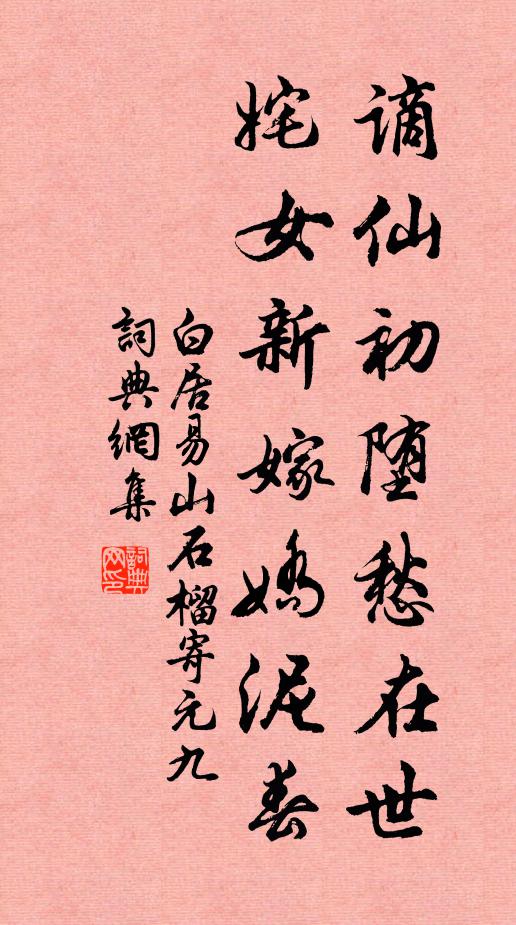 谪仙初堕愁在世
姹女新嫁娇泥春
白居易山石榴寄元九
詞典網集
詞典网印